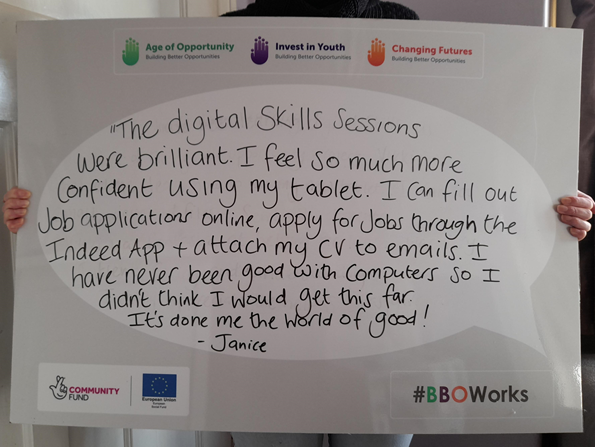 Age of Opportunity
Building Better Opportunities
Invest in Youth
Building Better Opportunities
Changing Futures
Building Better Opportunities
"The digital Skills Sessions
were brilliant. I feel so much more
Confident using my tablet. I can fill out
Job applications online, apply for Jobs through the
Indeed App + attach my CV to emails. I
have never been good with Computers so I
didn't think I would get this far.
It's done me the world of good!
- Janice
COMMUNITY
FUND
European Union
European
Social Fund
#BBOWorks